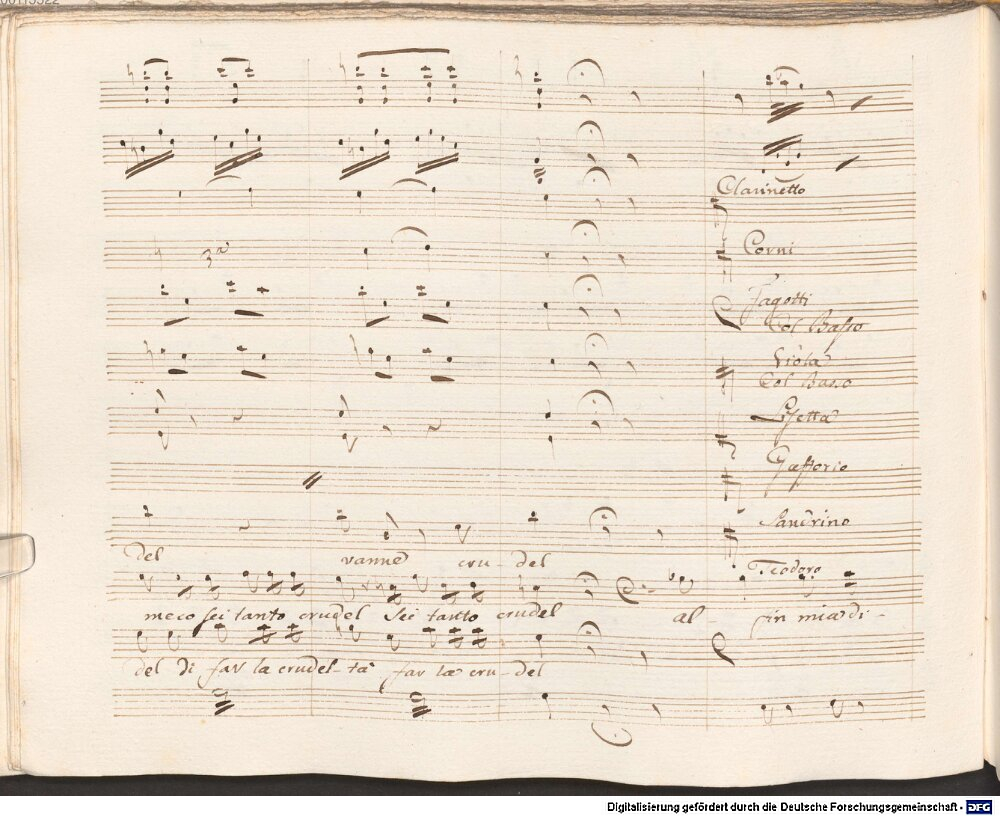 Clarinetto
Corni
Fagotti
Col Basso
Viola
Col Basso
Lisetta
Gafforio
Sandrino
del vanne cru-del
Teodoro
meco sei tanto crudel sei tanto crudel al - fin mia di-
del di far la crudel-tà far la cru-del
Digitalisierung gefördert durch die Deutsche Forschungsgemeinschaft - DFG